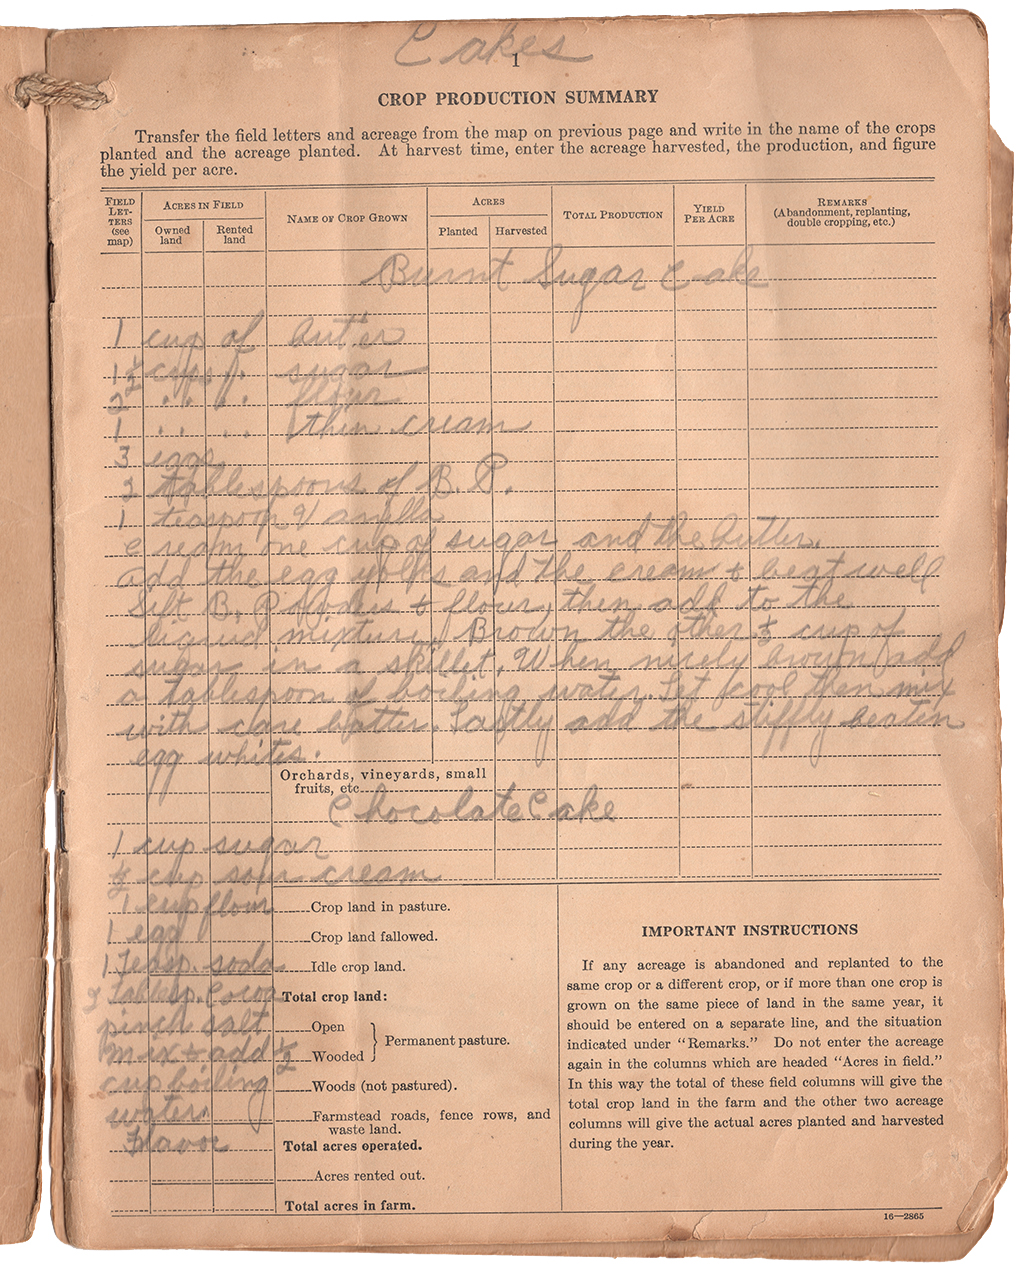 Cakes
1
CROP PRODUCTION SUMMARY
Transfer the field letters and acreage from the map on previous page and write in the name of the crops
planted and the acreage planted. At harvest time, enter the acreage harvested, the production, and figure
the yield per acre.
FIELD LET-TERS (see map)
ACRES IN FIELD
Owned land
Rented land
NAME OF CROP GROWN
ACRES
Planted
Harvested
TOTAL PRODUCTION
YIELD PER ACRE
REMARKS
(Abandonment, replanting,
double cropping, etc.)
Burnt Sugar Cake
1 cup of butter
1 1/2 cups of sugar
2 " " flour
1 " " thin cream
3 eggs
2 tablespoons of B. P.
1 teaspoon Vanilla
Cream one cup of sugar and the butter.
add the egg yolks and the cream + beat well
Sift B. P. + flour, then add to the
liquid mixture. Brown the other 1/2 cup of
sugar in a skillet. When nicely brown add
a tablespoon of boiling water. Let cool then mix
with cake batter. Lastly add the stiffly beaten
egg whites.
Orchards, vineyards, small
fruits, etc.
Chocolate Cake
1 cup sugar
1/2 cup sour cream
1 cup flour
1 egg
1 teasp. soda
2 tablesp. Cocoa
pinch salt
mix + add 1/2
cup boiling
water
Flavor
Crop land in pasture.
Crop land fallowed.
Idle crop land.
Total crop land:
Open
Wooded
Permanent pasture.
Woods (not pastured).
Farmstead roads, fence rows, and
waste land.
Total acres operated.
Acres rented out.
Total acres in farm.
IMPORTANT INSTRUCTIONS
If any acreage is abandoned and replanted to the
same crop or a different crop, or if more than one crop is
grown on the same piece of land in the same year, it
should be entered on a separate line, and the situation
indicated under "Remarks." Do not enter the acreage
again in the columns which are headed "Acres in field."
In this way the total of these field columns will give the
total crop land in the farm and the other two acreage
columns will give the actual acres planted and harvested
during the year.
16—2865